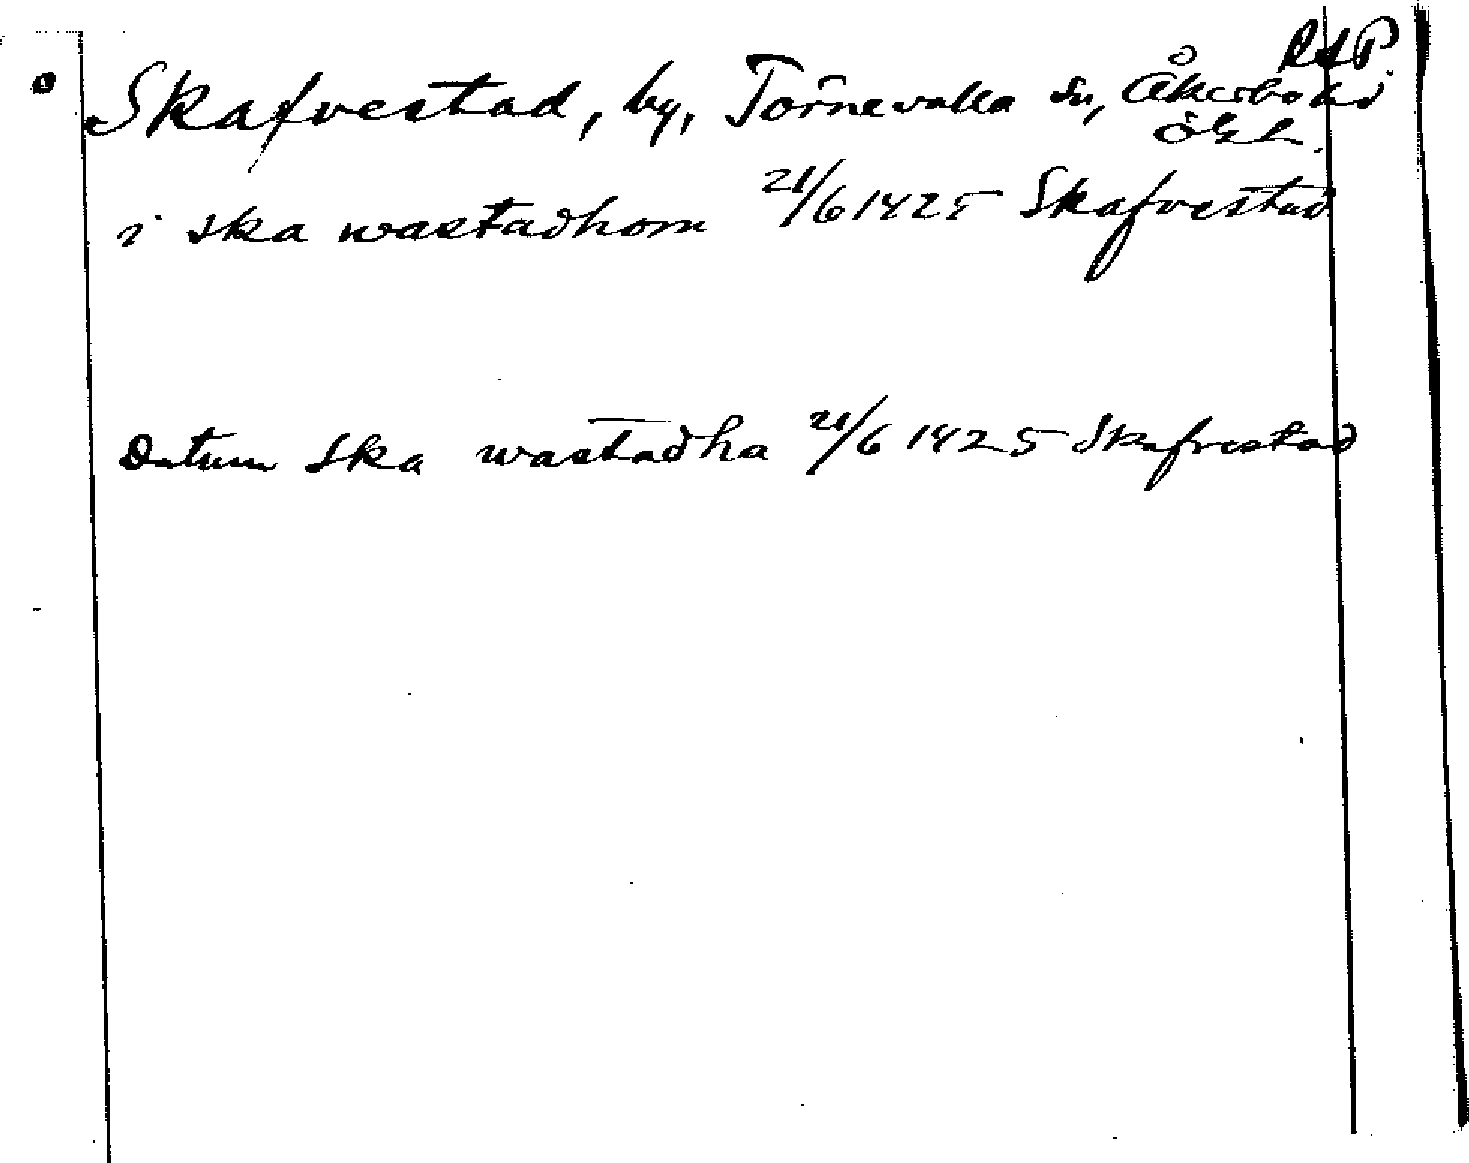 RAP.
Skafvestad, by, Törnevalla sn, Åkerbo hd
ÖGL.
i ska wastadhom 21/6 1425 Skafvestad
Datum Ska wastadha 21/6 1425 Skafvestad